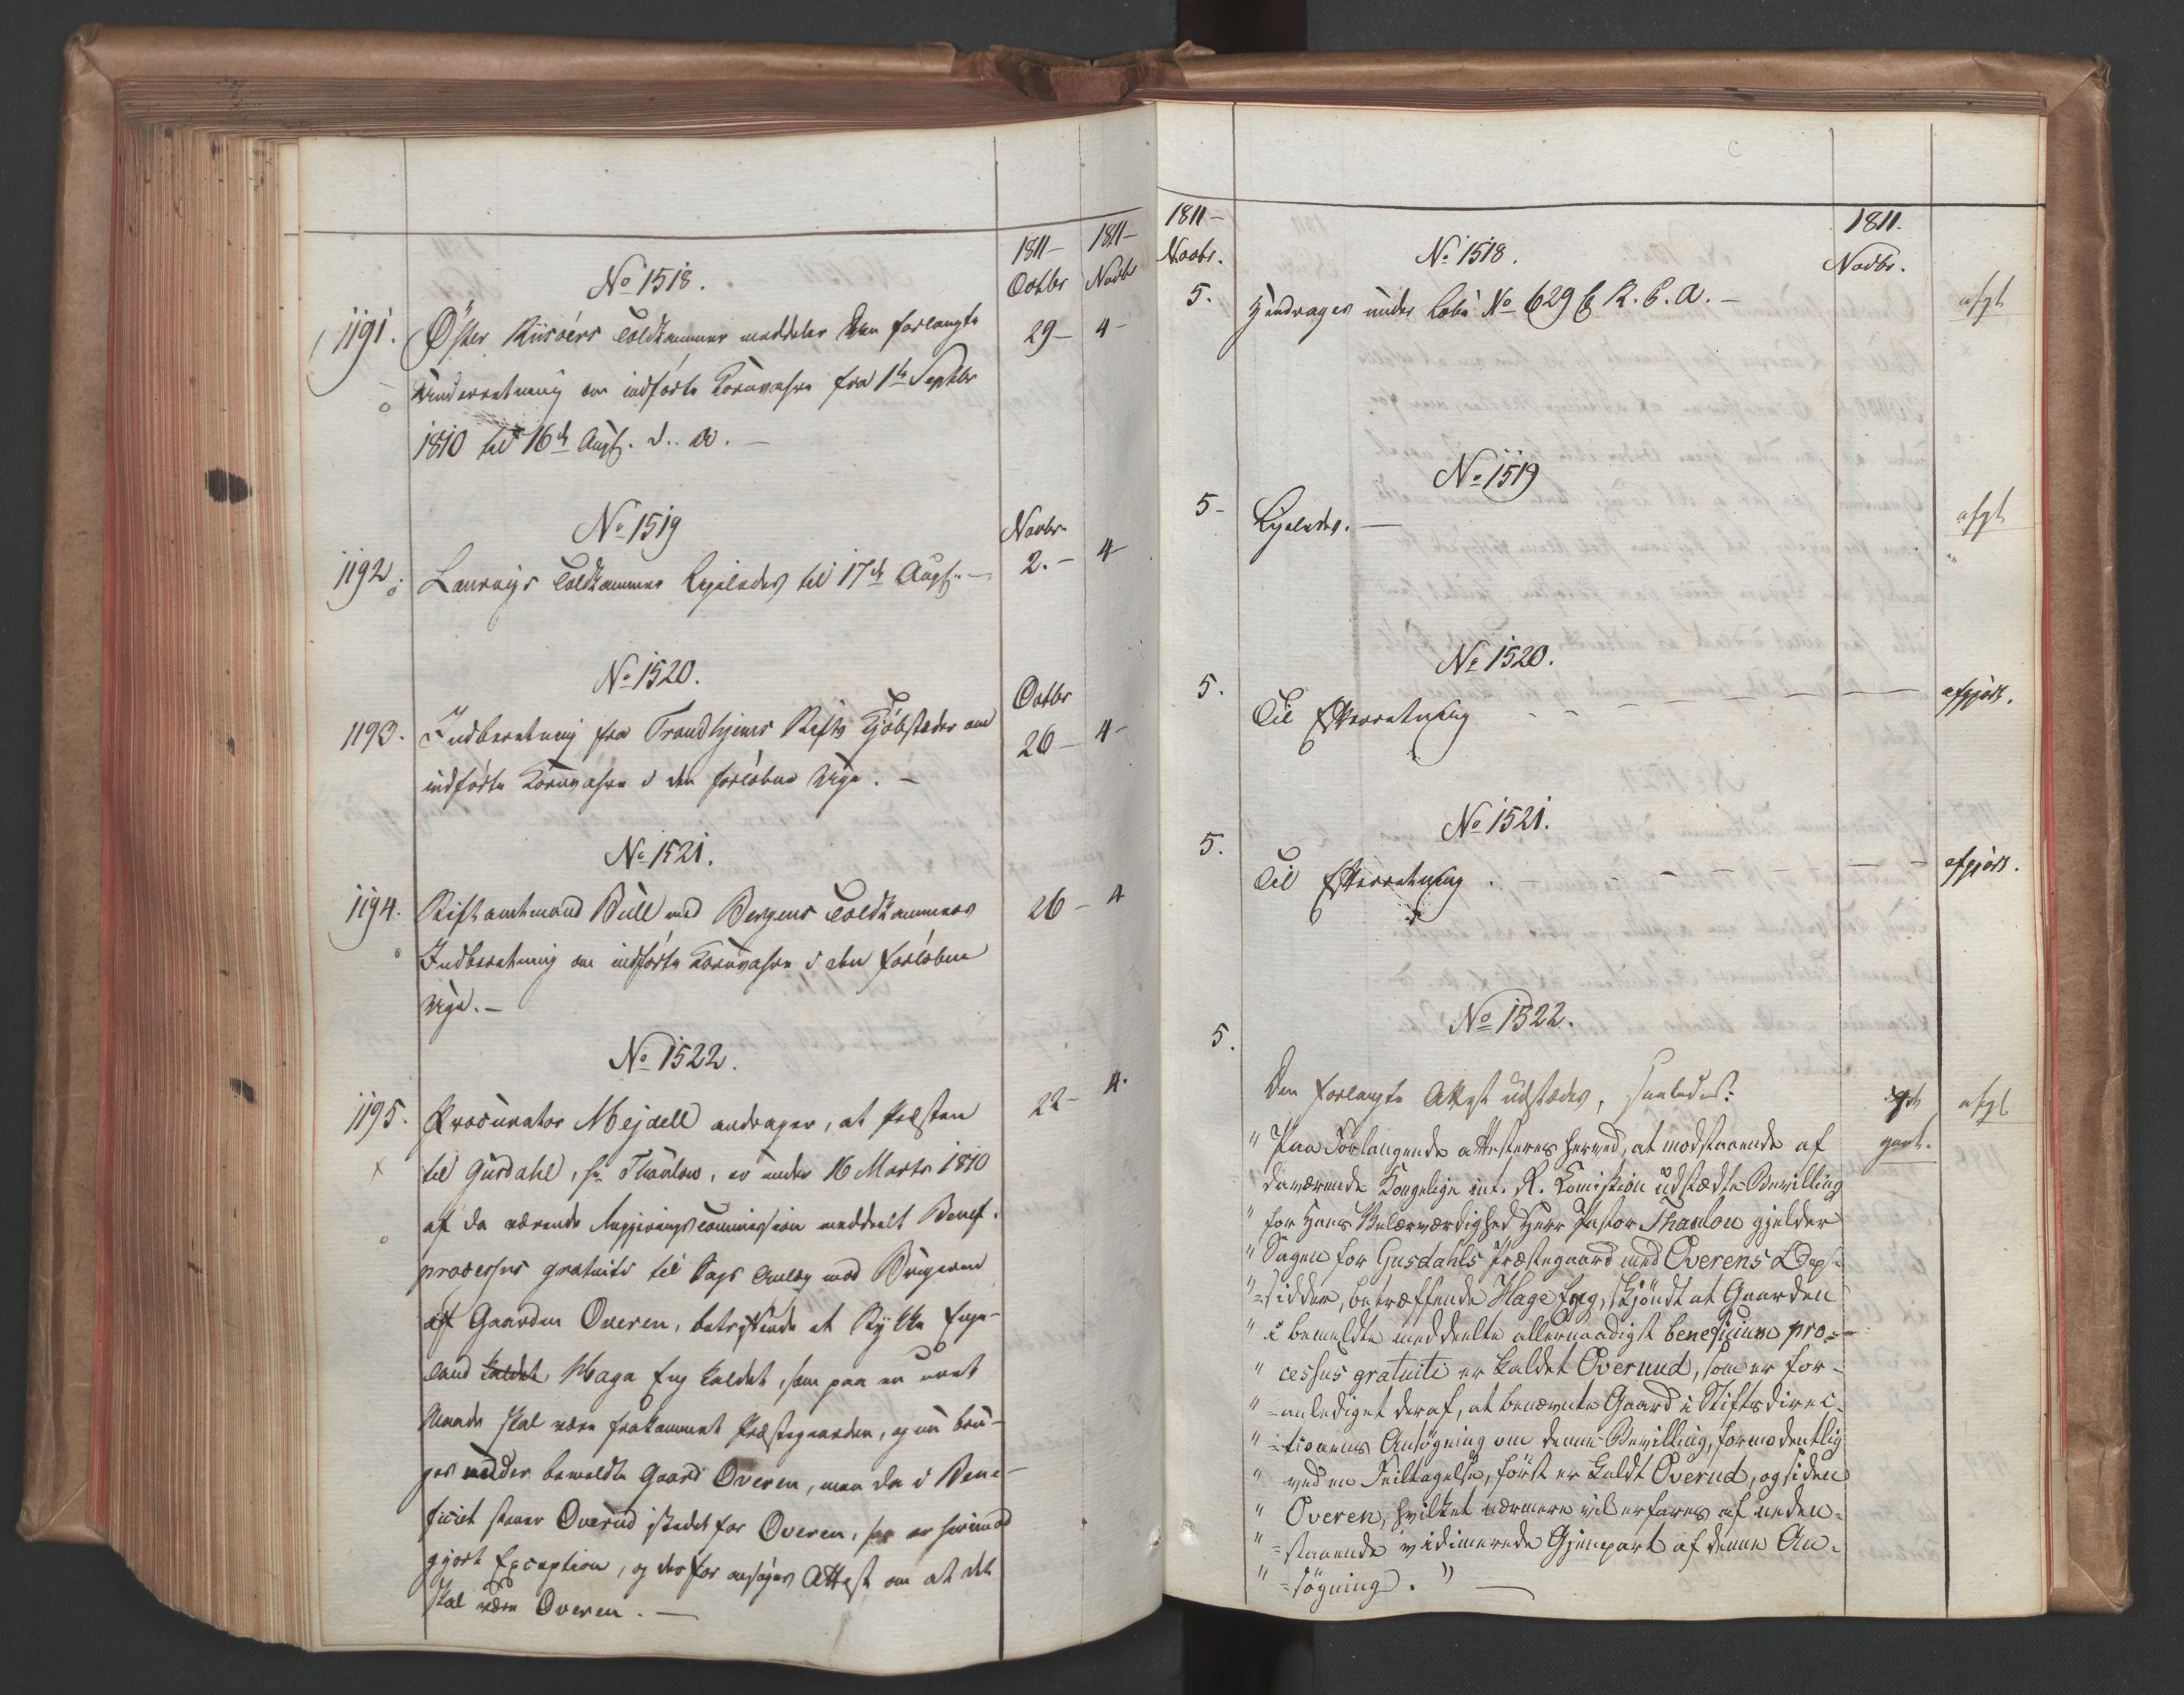 1811- 1811-
Octbr Novbr
No 1518.
1191. Öster Riisöers Toldkammer meddeler den forlangte 29- 4-
Underretning om indførte Kornvahre fra 1ste Septbr
1810 til 16de Augs. d. A. -
No 1519 Novbr
1192. Laurvigs Toldkammer ligeledes til 17de Augs. - 2.- 4-
No 1520. Octbr
1193. Indberetning fra Trondhjems Stifts Kjöbsteder om 26- 4-
indførte Kornvahre i den forløbne Uge. -
No 1521.
1194. Stiftamtmand Bull med Bergens Toldkammers 26- 4
Indberetning om indførte Kornvahre i den forløbne
Uge. -
No 1522.
1195. Procurator Mejdell andrager, at Præsten 22- 4.
til Gusdahl, Hr Thaulow, er under 16 Marts 1810
af da værende Regjeringscommission meddeelt Benef.
processus gratuiti til Sags Anlæg mod Brugeren
af Gaarden Overen, betræffende et Stykke Enge-
land kaldet, Hage Eng kaldet, som paa en uret
Maade skal være frakommet Præstegaarden, og nu bru-
ges under bemeldte Gaard Overen, men da i Bene-
ficiet staaer Overud istedet for Overen, er herimod
gjort Exception, og derfor ansøges Attest om at det
skal være Overen. -
1811- 1811.
Novbr. Novbr.
No 1518.
5. Hendrages under Lobe No 629 R. C. A. - afgt
No 1519
5- Ligeledes. - afgt
No 1520.
5. Til Efterretning - - - - afgjort.
No 1521.
5. Til Efterretning . - - - - afgjort.
No 1522.
5.
Den forlangte Attest udstædes, saaledes: afgt
" Paa Forlangende attesteres herved, at modstaaende af
" daværende Kongelige int. R. Comission udstædte Bevilling
" for Hans Velærværdighed Herr Pastor Thaulou gjelder
" Sagen for Gusdahls Præstegaard med Overens Op-
" =sidder, betræffende Hage Eng, skjöndt at Gaarden
" i bemeldte meddeelte allernaadigst beneficium pro=
" cessus gratuiti er kaldet Overuud, som er for-
" =anlediget deraf, at benævnte Gaard i Stiftsdirec-
" =tionens Ansögning om denne Bevilling, formodentlig
" ved en Feiltagelse, först er kaldt Overud, og siden
" Overen, hvilket nærmere vil erfares af neden=
" =staaende vidimerede Gjenpart af denne An-
" =sögning." -